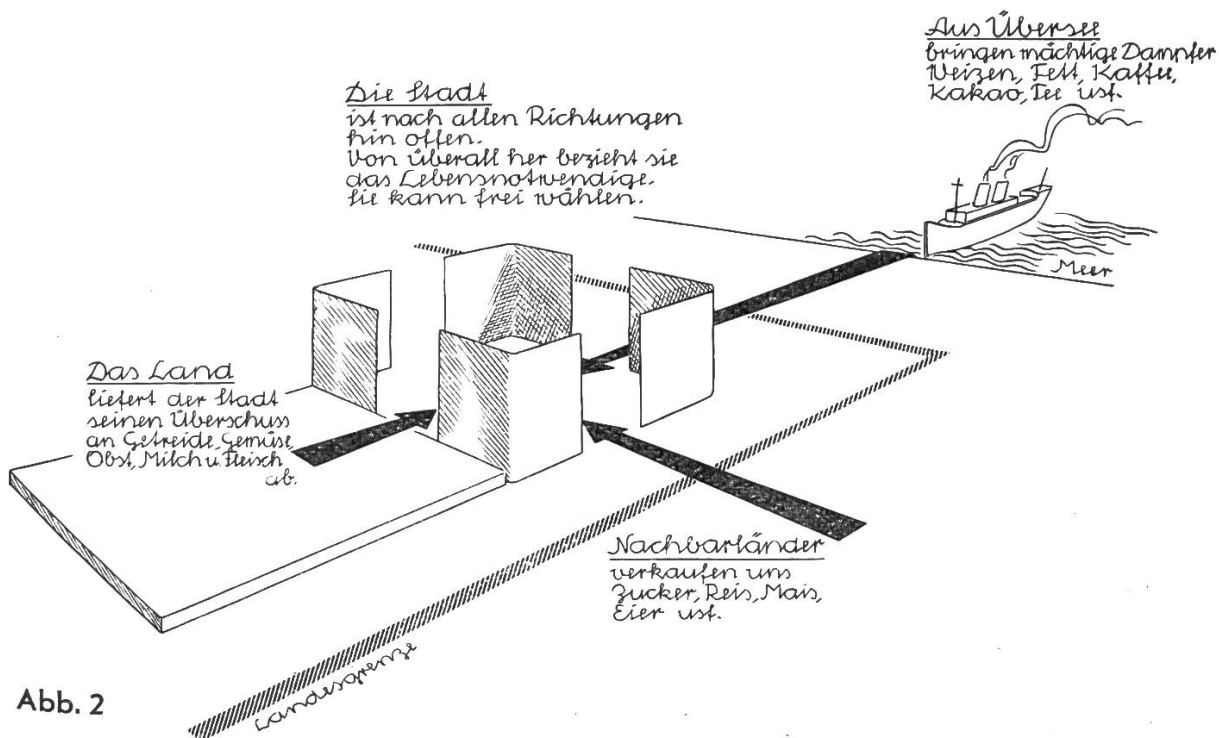 Aus Übersee
bringen mächtige Dampfer
Weizen, Fett, Kaffee,
Kakao, Tee usf.
Die Stadt
ist nach allen Richtungen
hin offen.
Von überall her bezieht sie
das Lebensnotwendige.
Sie kann frei wählen.
Meer
Das Land
liefert der Stadt
seinen Überschuss
an Getreide, Gemüse,
Obst, Milch u. Fleisch
ab.
Nachbarländer
verkaufen uns
Zucker, Reis, Mais,
Eier usf.
Landesgrenze
Abb. 2